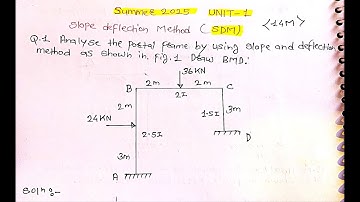 Summer 2025 UNIT-1
Slope deflection Method (SDM) <14M>
Q.1 Analyse the portal frame by using slope and deflection
method as shown in fig.1 Draw BMD.
36KN
2m 2m
B C
2I
2m
1.5I 3m
24KN
2.5I
D
3m
A
Soln:-